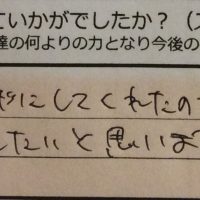 ていかがでしたか？（ス
達の何よりの力となり今後の
にしてくれたの
したいと思いま